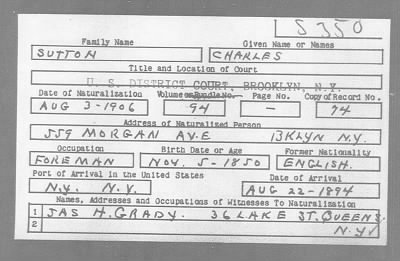 S350
Family Name Given Name or Names
SUTTON CHARLES
Title and Location of Court
U. S. DISTRICT COURT, BROOKLYN, N.Y.
Date of Naturalization Volume or Bundle No. Page No. Copy of Record No.
AUG 3-1906 94 — 94
Address of Naturalized Person
559 MORGAN AVE BKLYN N.Y.
Occupation Birth Date or Age Former Nationality
FOREMAN NOV. 5-1850 ENGLISH.
Port of Arrival in the United States Date of Arrival
N.Y. N.Y. AUG 22-1894
Names, Addresses and Occupations of Witnesses To Naturalization
1 JAS H. GRADY. 36 LAKE ST. QUEENS
2 N.Y.